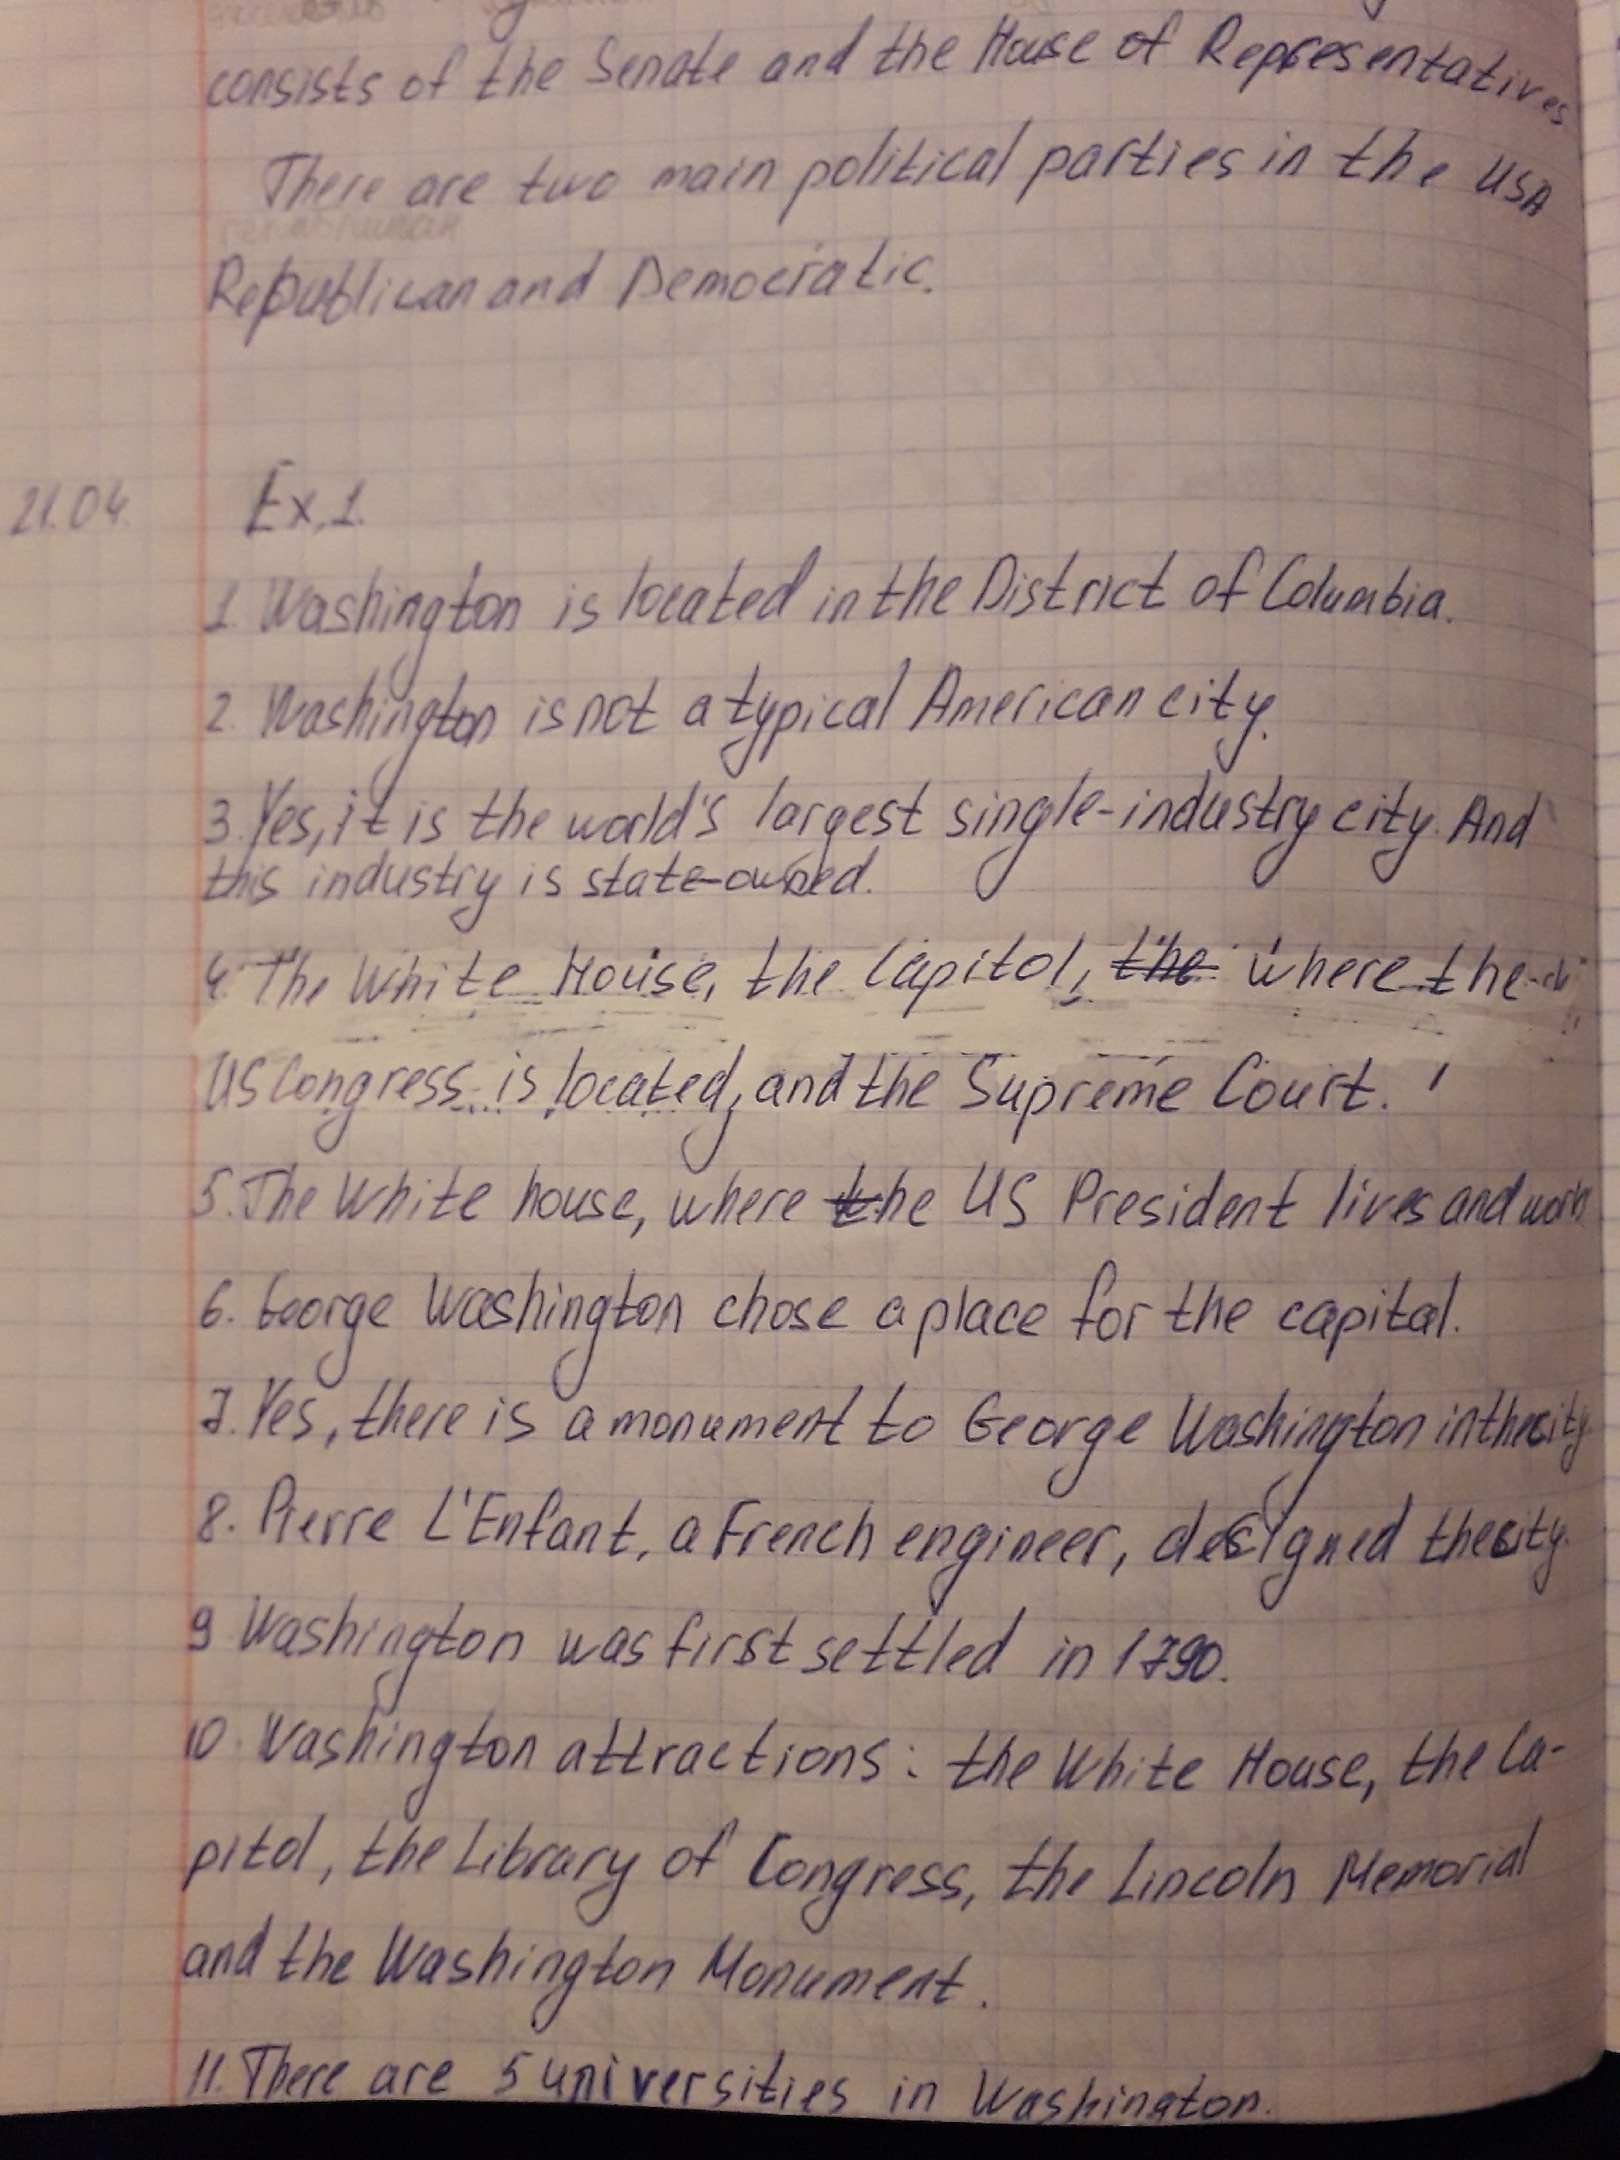 consists of the Senate and the House of Representatives
There are two main political parties in the USA
Republican and Democratic.
21.04. Ex.1.
1. Washington is located in the District of Columbia.
2. Washington is not a typical American city.
3. Yes, it is the world's largest single-industry city. And
this industry is state-owned.
4. The White House, the Capitol, the where the
US Congress is located, and the Supreme Court.
5. The White house, where the US President lives and work
6. George Washington chose a place for the capital.
7. Yes, there is a monument to George Washington in the city.
8. Pierre L'Enfant, a French engineer, designed the city.
9 Washington was first settled in 1790.
10. Washington attractions: the White House, the Ca-
pitol, the Library of Congress, the Lincoln Memorial
and the Washington Monument.
11. There are 5 universities in Washington.